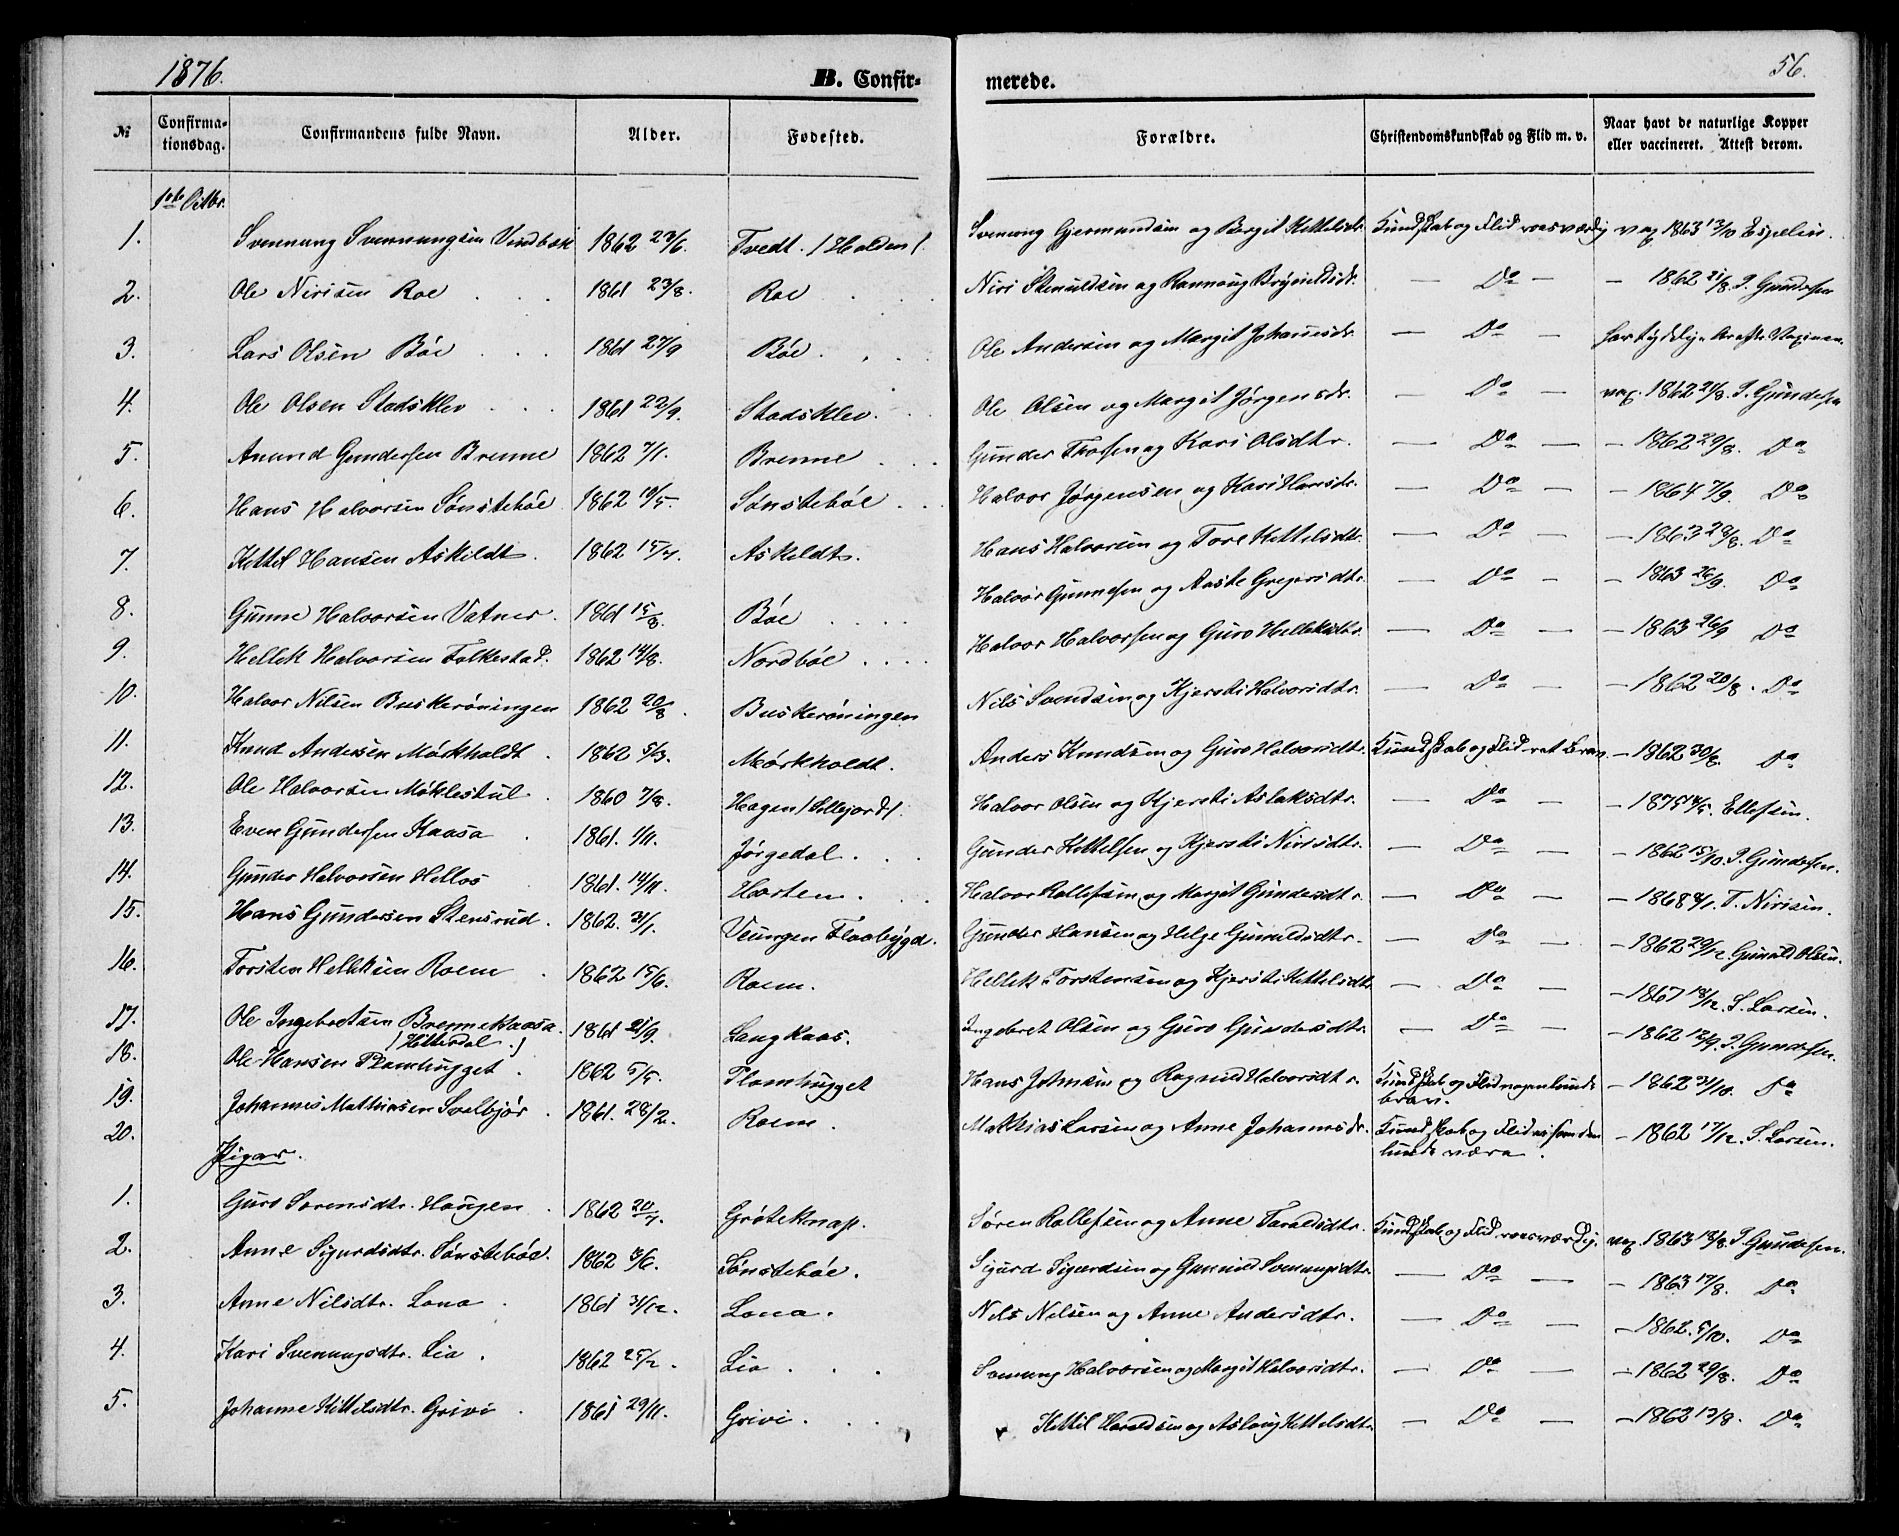 1876.
B. Confirmerede.
56.
№ Confirmationsdag. Confirmandens fulde Navn. Alder. Fødested. Forældre. Christendomskundskab og Flid m. v. Naar havt de naturlige Kopper eller vaccineret. Attest derom.
1ste Octbr.
1. Svennung Svennungsen Vindbæk 1862 23/6. Tvedt. /Holden/. Svennung Gjermundsen og Bergit Kittelsdr. Kundskab og Flid roesværdig vax. 1863 13/10 Espelin.
2. Ole Nirisen Roe 1861 23/8. Roe Niri Stenuldsen og Rannoug Brynildsdr. — Do — — 1862 21/8. P. Gundersen
3. Lars Olsen Böe 1861 27/9 Böe. Ole Andersen og Margit Johannesdr. — Do — har tydelig Ar efter
4. Ole Olsen Stadsklev 1861 22/9. Stadsklev. Ole Olsen og Margit Jörgensdr. — Do — vax. 1862 21/8. P. Gundersen
5. Anund Gundersen Brenne 1862 7/1. Brenne Gunder Thorsen og Kari Olsdtr. — Do — — 1862 29/8. Do
6. Hans Halvorsen Sönsteböe 1862 19/5. Sönsteböe Halvor Jörgensen og Kari Hansdr. — Do — — 1864 7/9. Do
7. Kettil Hansen Askildt. 1862 15/4. Askildt. Hans Halvorsen og Tore Kittelsdtr. — Do — — 1863 28/8. Do
8. Gunne Halvorsen Vatner. 1861 15/8. Böe Halvor Gunnesen og Aaste Gregersdtr. — Do — — 1863 26/9 Do
9. Hellek Halvorsen Folkestad. 1862 14/8. Nordböe Halvor Halvorsen og Guro Helleksdtr. — Do — — 1863 26/9 Do
10. Halvor Nilsen Buskeröningen 1862 20/8. Buskeröningen Nils Svendsen og Kjersti Halvorsdtr. — Do — — 1862 20/8. Do
11. Knud Andersen Mörkholdt. 1862 5/3. Mörkholdt. Anders Knudsen og Guro Halvorsdtr. Kundskab og Flid ret brav — 1862 30/8. Do
12. Ole Halvorsen Möklestul. 1860 7/8. Hagen /Sillejord/. Halvor Olsen og Kjersti Aslaksdtr. — Do — — 1875 14/5. Ellefsen.
13. Even Gundersen Kaasa 1861. 1/11. Jörgedal. Gunder Kittelsen og Kjersti Nirisdtr. — Do — — 1862 15/10. P. Gundersen.
14. Gunder Halvorsen Hellos 1861. 14/11. Hortem. Halvor Rollefsen og Margit Gundersdtr. — Do — — 1868 8/1. T. Nirisen.
15. Hans Gundersen Stensrud. 1862. 31/1. Veungen Flaabygd. Gunder Hansen og Helge Gunuldsdtr. — Do — — 1862 29/12. Gunuld Olsen.
16. Torsten Helleksen Roem 1862 15/6. Roem. Hellek Torstensen og Kjersti Kittelsdtr. — Do — — 1867 18/12. S. Larsen.
17. Ole Ingebretsen Brennekaasa. 1861 21/9. Langkaas. Ingebret Olsen og Guro Gundersdtr. — Do — — 1862 12/9. P. Gundersen.
/Hitterdal./
18. Ole Hansen Plomhugget. 1862 5/5. Plomhugget Hans Johnsen og Ragnild Halvorsdtr. Kundskab og Flid nogenlunde brav. — 1862 31/10. Do
19. Johannes Mathiasen Svelbjör. 1861. 28/12. Roem. Mathias Larsen og Anne Johannesdr. Kundskab og Flid — 1862 17/12. S. Larsen.
20.
Pigar.
1. Guro Sorensdtr. Haugen. 1862 20/4. Gröteknap. Søren Rollefsen og Anne Taraldsdtr. Kundskab og Flid roesværdig. vax. 1863 18/8. P. Gundersen.
2. Anne Sigurdsdtr. Sönsteböe. 1862 3/6. Sönsteböe. Sigurd Sigurdsen og Gunnild Svenungsdtr. — Do — — 1863 17/8. Do
3. Anne Nilsdtr. Lona. 1861 31/12. Lona. Nils Nilsen og Anne Andersdtr. — Do — — 1862. 5/10. Do
4. Kari Svenungsdtr. Lia. 1862 25/2. Lia Svenung Halvorsen og Margit Halvorsdtr. — Do — — 1862 29/8. Do
5. Johanne Kittilsdtr. Grivi. 1861 29/11. Grivi. Kittil Haraldsen og Aslaug Kittelsdtr. — Do — — 1862 13/8. Do